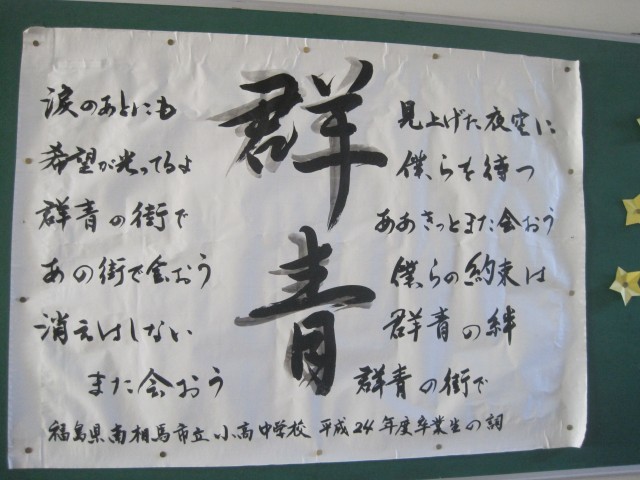 群青
涙のあとにも
希望が光ってるよ
群青の街で
あの街で会おう
消えはしない
また会おう
見上げた夜空に
僕らを待つ
ああきっとまた会おう
僕らの約束は
群青の絆
群青の街で
福島県南相馬市立小高中学校 平成24年度卒業生の詞